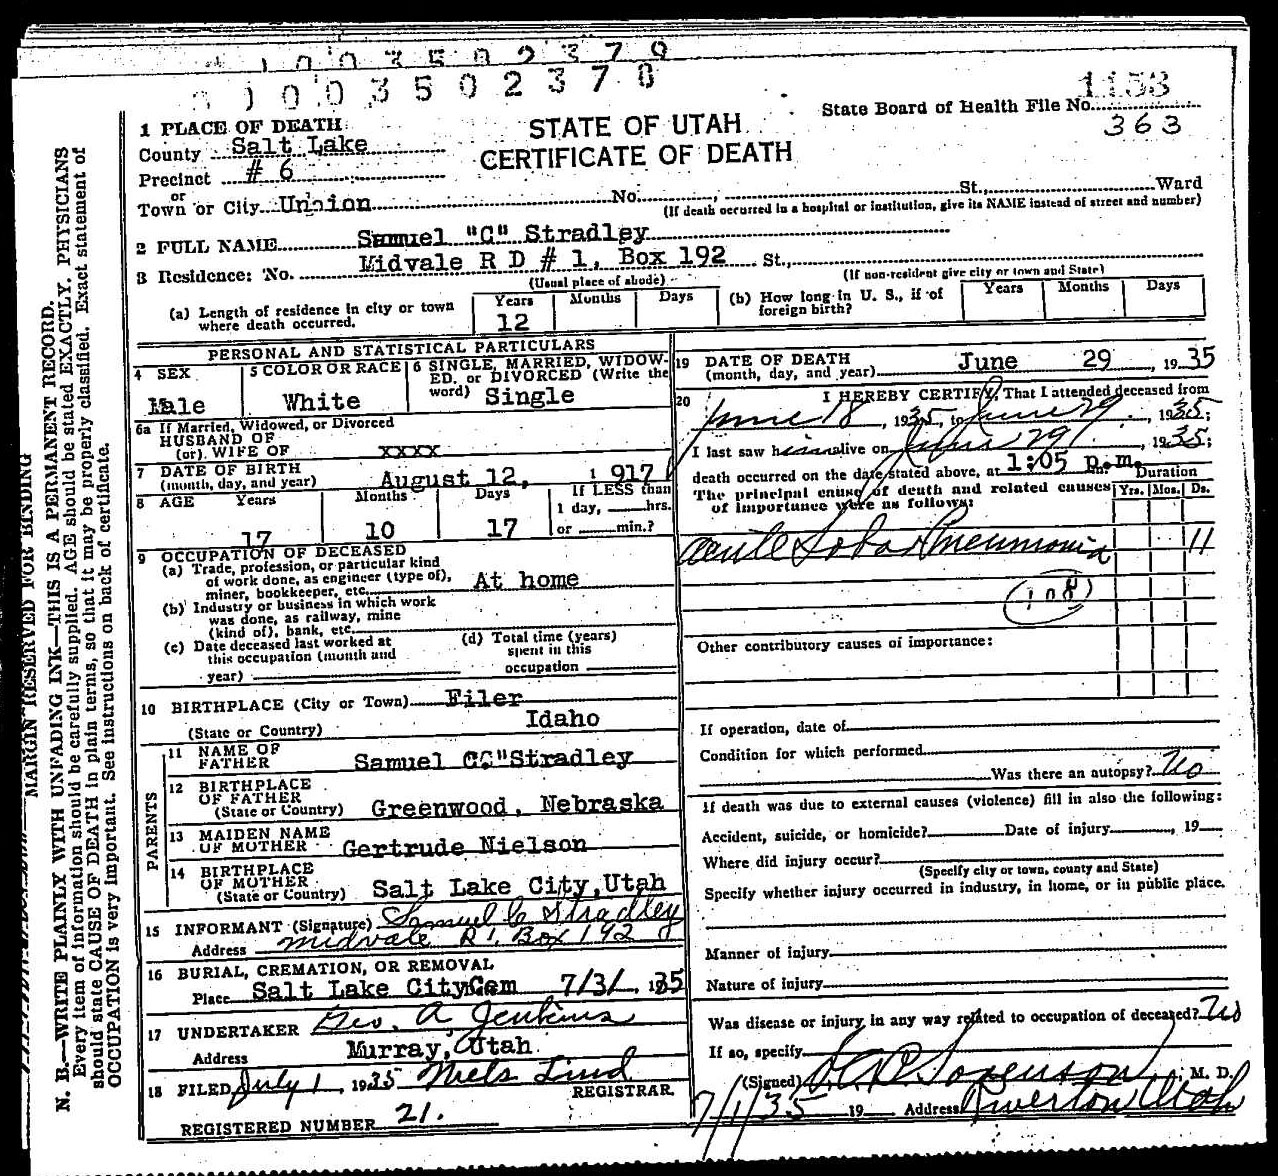 1003502379
1003502378
1153
State Board of Health File No.
363
STATE OF UTAH
CERTIFICATE OF DEATH
1 PLACE OF DEATH
County Salt Lake
Precinct # 6
or
Town or City Union No. , St., Ward
(If death occurred in a hospital or institution, give its NAME instead of street and number)
2 FULL NAME Samuel "C" Stradley
3 Residence: No. Midvale R D # 1, Box 192 St.,
(Usual place of abode) (If non-resident give city or town and State)
(a) Length of residence in city or town where death occurred. Years 12 Months Days
(b) How long in U. S., if of foreign birth? Years Months Days
PERSONAL AND STATISTICAL PARTICULARS
4 SEX Male
5 COLOR OR RACE White
6 SINGLE, MARRIED, WIDOWED, or DIVORCED (Write the word) Single
6a If Married, Widowed, or Divorced
HUSBAND OF
(or) WIFE OF xxxx
7 DATE OF BIRTH
(month, day, and year) August 12, 1 917
8 AGE Years 17 Months 10 Days 17 If LESS than 1 day, hrs. or min.?
9 OCCUPATION OF DECEASED
(a) Trade, profession, or particular kind
of work done, as engineer (type of),
miner, bookkeeper, etc. At home
(b) Industry or business in which work
was done, as railway, mine
(kind of), bank, etc.
(c) Date deceased last worked at this occupation (month and year)
(d) Total time (years) spent in this occupation
10 BIRTHPLACE (City or Town) Filer
(State or Country) Idaho
PARENTS
11 NAME OF FATHER Samuel CC"Stradley
12 BIRTHPLACE OF FATHER
(State or Country) Greenwood, Nebraska
13 MAIDEN NAME OF MOTHER Gertrude Nielson
14 BIRTHPLACE OF MOTHER
(State or Country) Salt Lake City, Utah
15 INFORMANT (Signature) Samuel C Stradley
Address Midvale R 1. Box 192
16 BURIAL, CREMATION, OR REMOVAL
Place Salt Lake City Cem 7/31, 1935
17 UNDERTAKER Geo. A. Jenkins
Address Murray, Utah
18 FILED July 1, 1935 Niels Lind
REGISTRAR
REGISTERED NUMBER 21.
19 DATE OF DEATH
(month, day, and year) June 29 , 1935
20 I HEREBY CERTIFY, That I attended deceased from
June 18, 1935, to June 29, 1935;
I last saw him alive on June 29, 1935;
death occurred on the date stated above, at 1:05 p.m.
Duration
The principal cause of death and related causes
of importance were as follows: Yrs. Mos. Ds.
Acute Lobar Pneumonia 11
108
Other contributory causes of importance:
If operation, date of
Condition for which performed
Was there an autopsy? No
If death was due to external causes (violence) fill in also the following:
Accident, suicide, or homicide? Date of injury , 19
Where did injury occur?
(Specify city or town, county and State)
Specify whether injury occurred in industry, in home, or in public place.
Manner of injury
Nature of injury
Was disease or injury in any way related to occupation of deceased? No
If so, specify
(Signed) Sorenson, M. D.
7/1/35 19 Address Riverton Utah
MARGIN RESERVED FOR BINDING
N. B.—WRITE PLAINLY WITH UNFADING INK—THIS IS A PERMANENT RECORD.
Every item of information should be carefully supplied. AGE should be stated EXACTLY. PHYSICIANS
should state CAUSE OF DEATH in plain terms, so that it may be properly classified. Exact statement of
OCCUPATION is very important. See instructions on back of certificate.